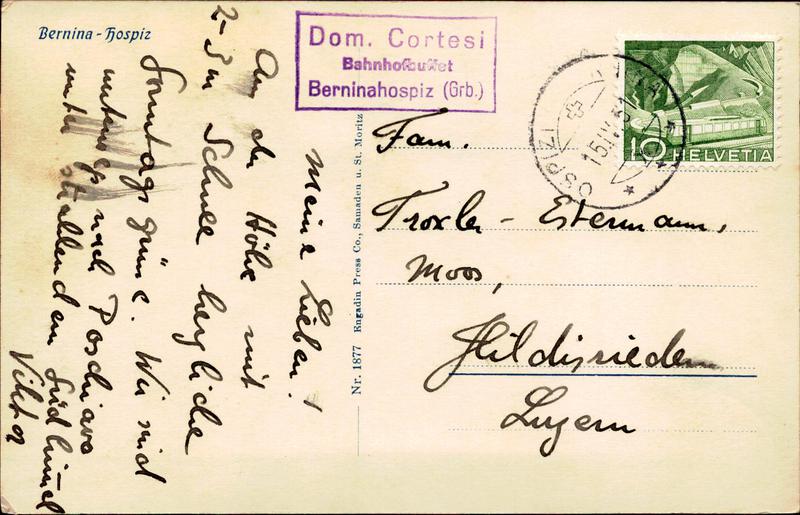 Bernina-Hospiz
Dom. Cortesi
Bahnhofbuffet
Berninahospiz (Grb.)
OSPIZI
15.IV.51
10 HELVETIA
Meine Lieben!
Aus der Höhe mit
2-3 m Schnee herzliche
Sonntagsgrüsse. Wir sind
unterwegs nach Poschiavo
unter strahlendem Südhimmel
Viktor
Nr. 1877 Engadin Press Co., Samaden u. St. Moritz
Fam.
Troxler-Estermann,
Moos,
Hildisrieden
Luzern